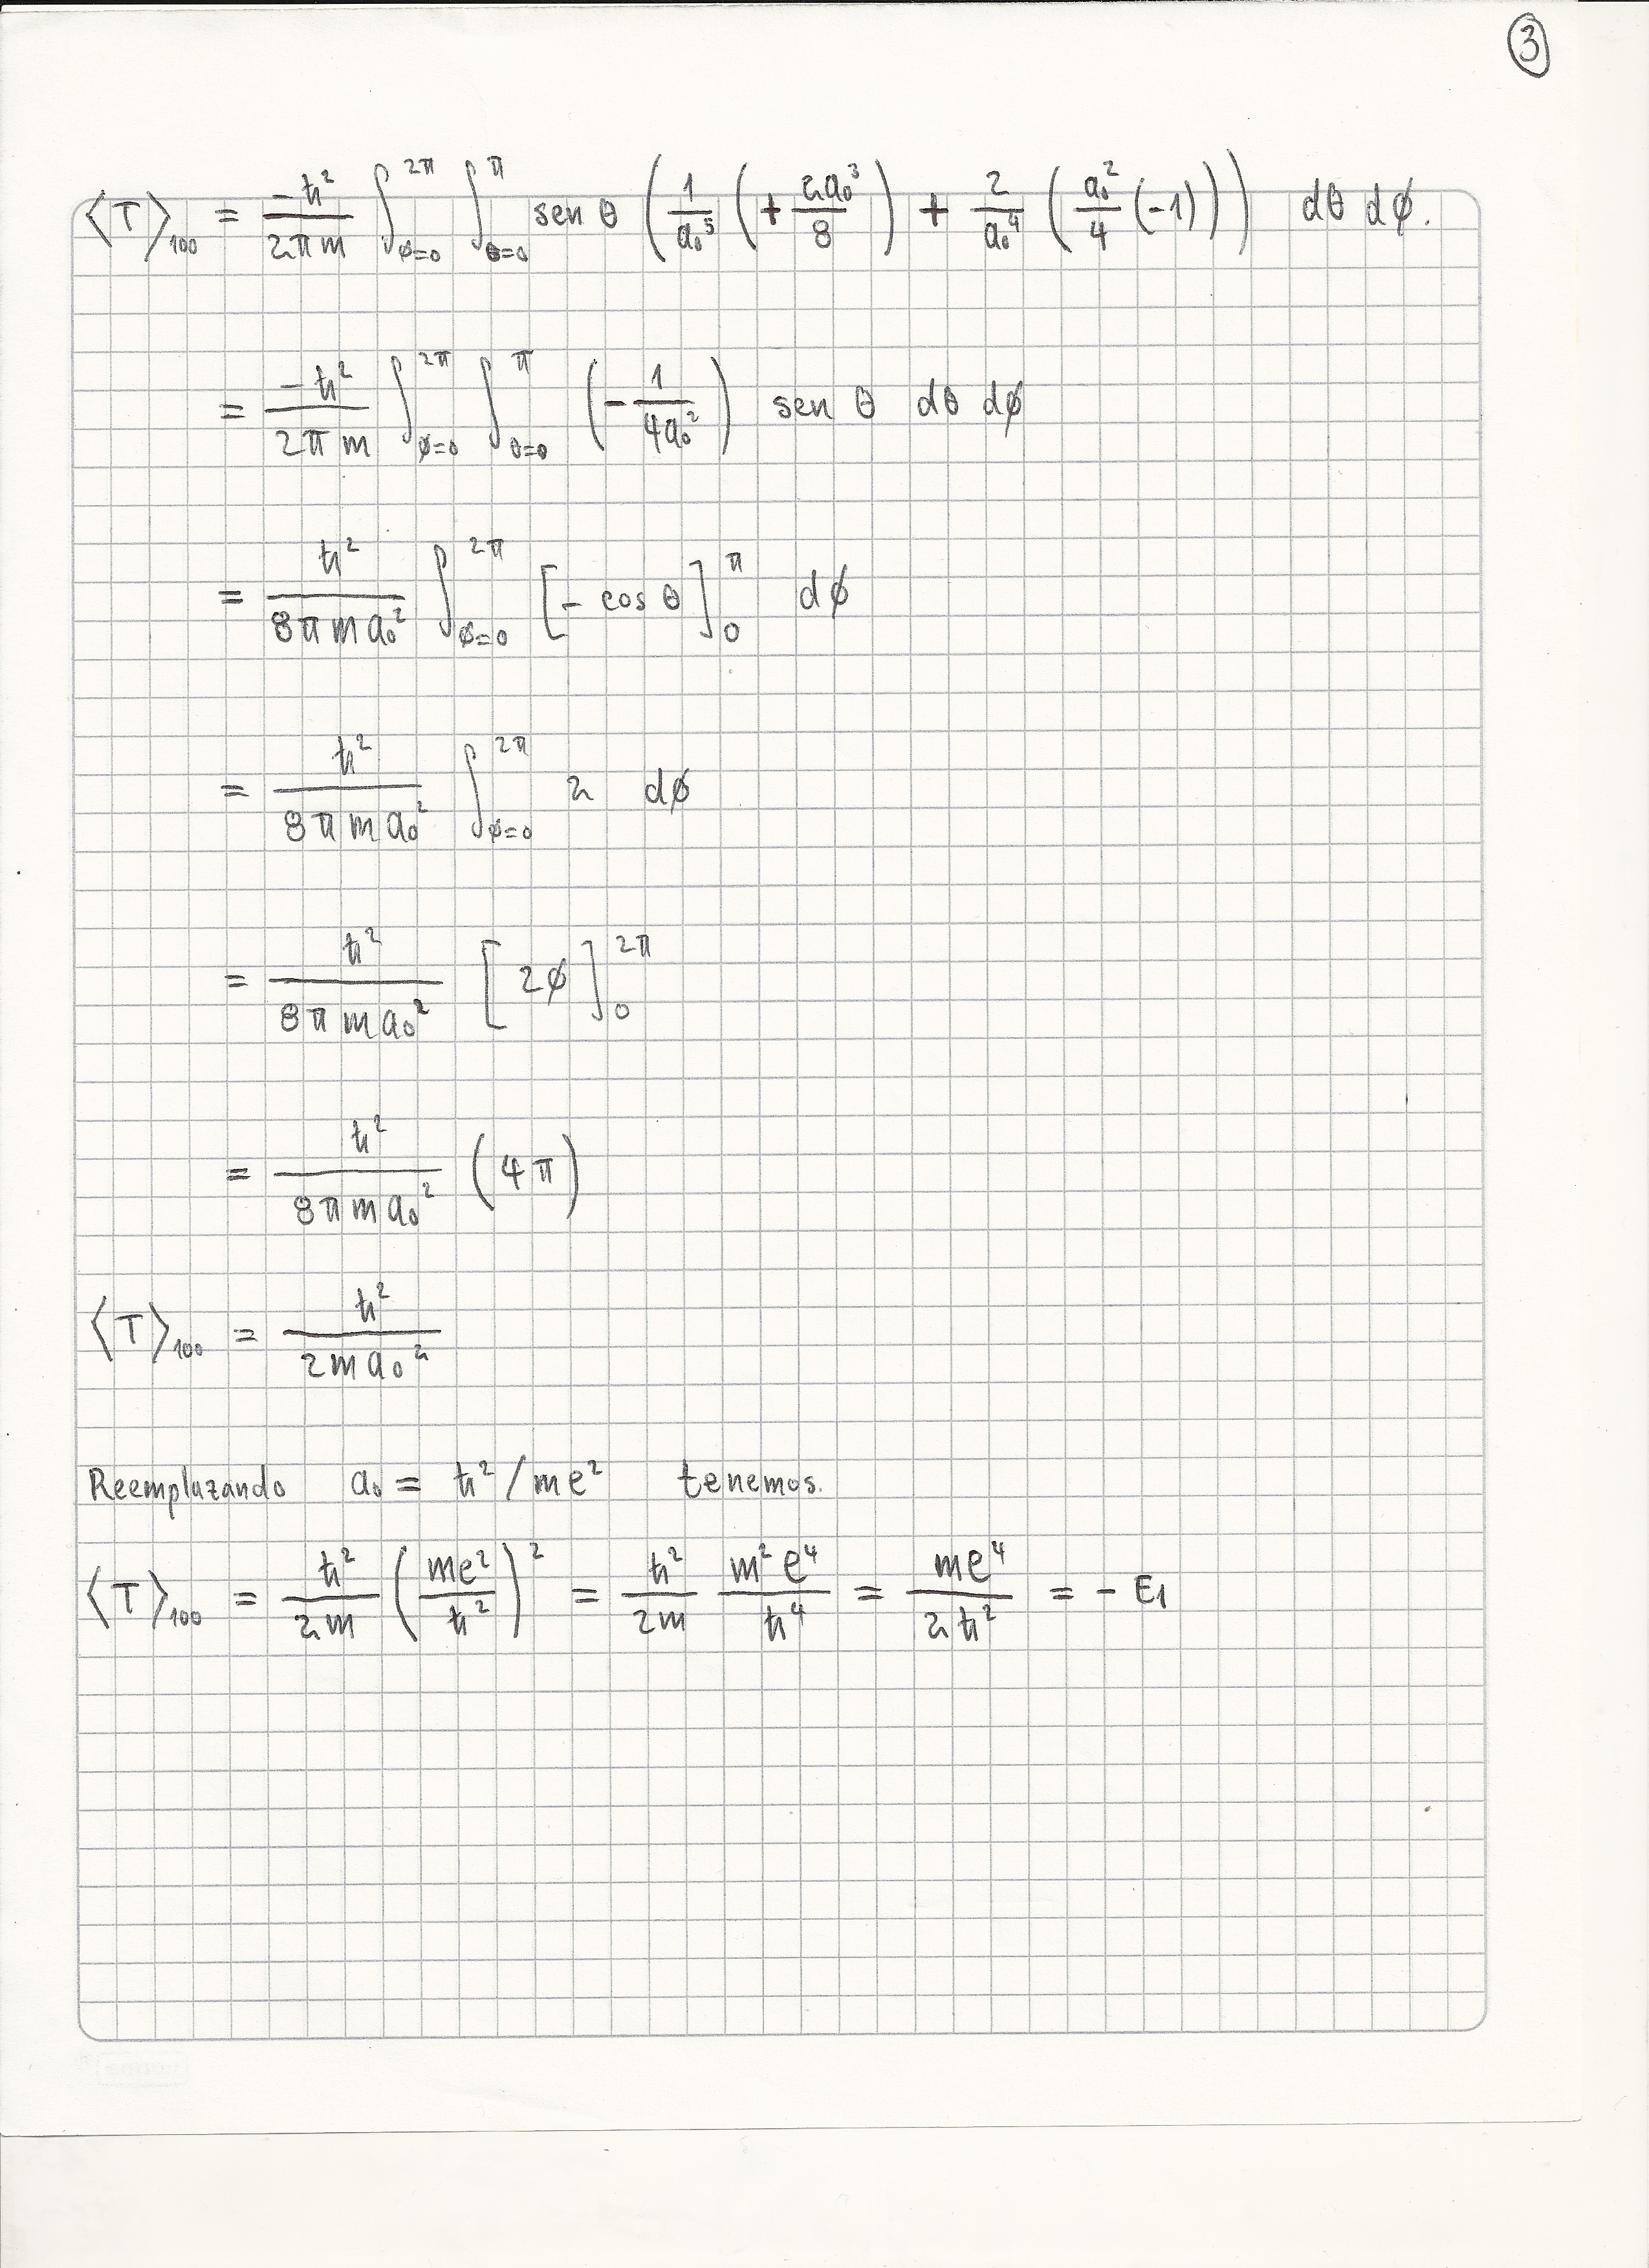 ③
⟨T⟩₁₀₀ = \frac{-ħ²}{2πm} ∫_{φ=0}^{2π} ∫_{θ=0}^{π} sen θ ( \frac{1}{a₀⁵} ( + \frac{2a₀³}{8} ) + \frac{2}{a₀⁴} ( \frac{a₀²}{4} (-1) ) ) dθ dφ.
= \frac{-ħ²}{2πm} ∫_{φ=0}^{2π} ∫_{θ=0}^{π} ( - \frac{1}{4a₀²} ) sen θ dθ dφ
= \frac{ħ²}{8πma₀²} ∫_{φ=0}^{2π} [ - cos θ ]_{0}^{π} dφ
= \frac{ħ²}{8πma₀²} ∫_{φ=0}^{2π} 2 dφ
= \frac{ħ²}{8πma₀²} [ 2φ ]_{0}^{2π}
= \frac{ħ²}{8πma₀²} ( 4π )
⟨T⟩₁₀₀ = \frac{ħ²}{2ma₀²}
Reemplazando a₀ = ħ²/me² tenemos.
⟨T⟩₁₀₀ = \frac{ħ²}{2m} ( \frac{me²}{ħ²} )² = \frac{ħ²}{2m} \frac{m²e⁴}{ħ⁴} = \frac{me⁴}{2ħ²} = - E₁